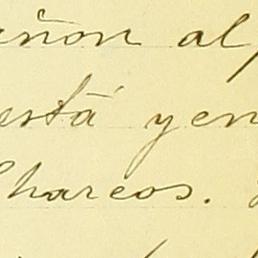 añon al
está yen
Charcos.